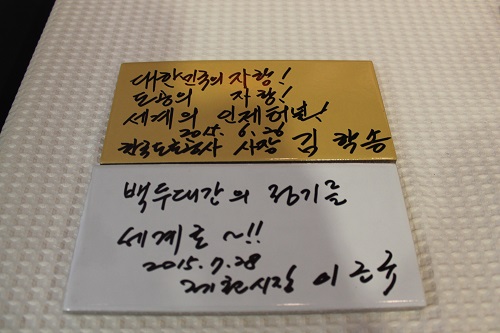 대한민국의 자랑!
도공의 자랑!
세계의 인제터널!
2015. 6. 26
한국도로공사 사장 김학송
백두대간의 정기를
세계로 ~!!
2015. 7. 28
제천시장 이근규